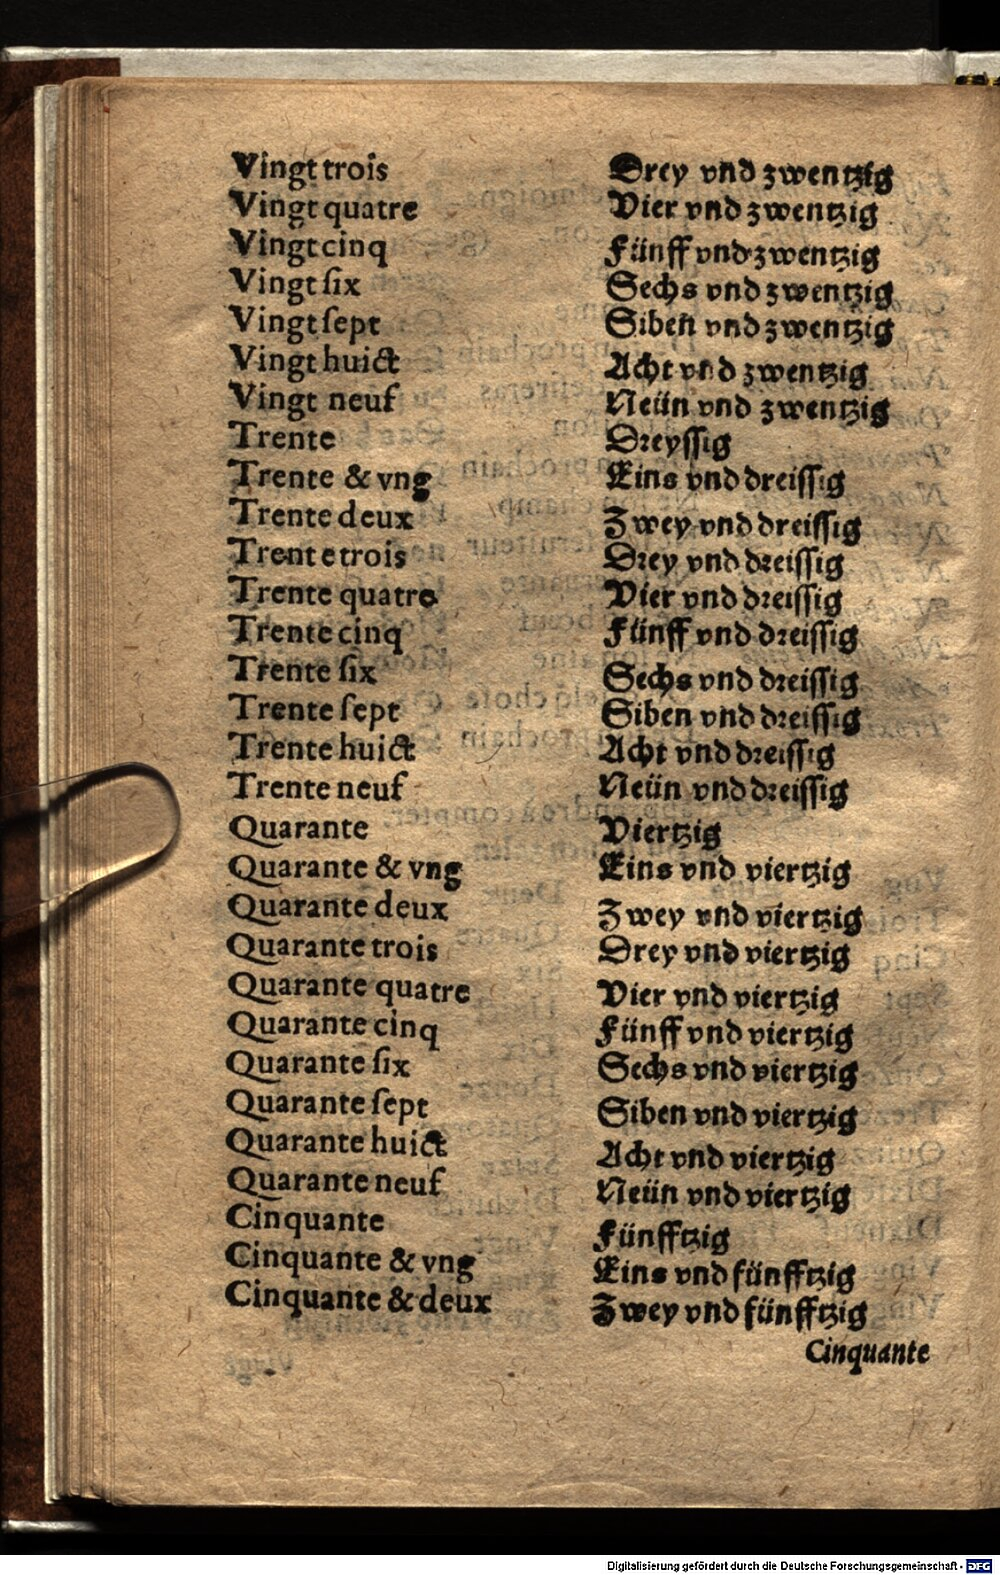 Vingt trois Drey vnd zwentzig
Vingt quatre Vier vnd zwentzig
Vingt cinq Fünff vnd zwentzig
Vingt ſix Sechs vnd zwentzig
Vingt ſept Siben vnd zwentzig
Vingt huict Acht vnd zwentzig
Vingt neuf Neün vnd zwentzig
Trente Dreyſſig
Trente & vng Eins vnd dreiſſig
Trente deux Zwey vnd dreiſſig
Trente trois Drey vnd dreiſſig
Trente quatre Vier vnd dreiſſig
Trente cinq Fünff vnd dreiſſig
Trente ſix Sechs vnd dreiſſig
Trente ſept Siben vnd dreiſſig
Trente huict Acht vnd dreiſſig
Trente neuf Neün vnd dreiſſig
Quarante Viertzig
Quarante & vng Eins vnd viertzig
Quarante deux Zwey vnd viertzig
Quarante trois Drey vnd viertzig
Quarante quatre Vier vnd viertzig
Quarante cinq Fünff vnd viertzig
Quarante ſix Sechs vnd viertzig
Quarante ſept Siben vnd viertzig
Quarante huict Acht vnd viertzig
Quarante neuf Neün vnd viertzig
Cinquante Fünfftzig
Cinquante & vng Eins vnd fünfftzig
Cinquante & deux Zwey vnd fünfftzig
Cinquante
Digitalisierung gefördert durch die Deutsche Forschungsgemeinschaft - DFG